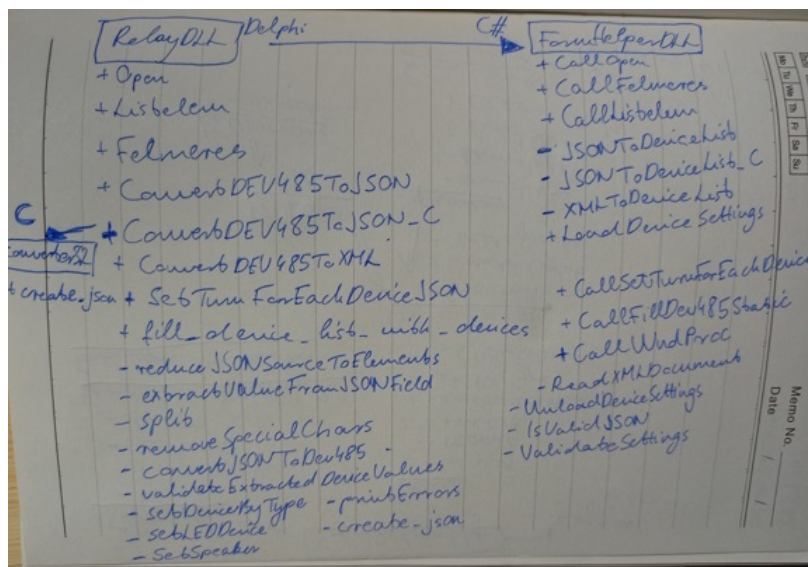 RelayDLL Delphi C# FormHelperDLL
+ Open
+ Listelem
+ Felmeres
+ ConvertDEV485ToJSON
+ ConvertDEV485ToJSON_C
+ ConvertDEV485ToXML
+ SetTurnForEachDeviceJSON
+ fill_device_list_with_devices
- reduceJSONSourceToElements
- extractValueFromJSONField
- split
- removeSpecialChars
- convertJSONToDev485
- validateExtractedDeviceValues
- setDeviceByType - printErrors
- setLEDDevice - create_json
- SetSpeaker
C
Converter32
+ create_json
+ CallOpen
+ CallFelmeres
+ CallListelem
- JSONToDeviceList
- JSONToDeviceList_C
- XMLToDeviceList
+ LoadDeviceSettings
+ CallSetTurnForEachDevice
+ CallFillDev485Static
+ CallWndProc
- ReadXMLDocument
- UnloadDeviceSettings
- IsValidJSON
- ValidateSettings
Mo Tu We Th Fr Sa Su
Memo No.
Date / /